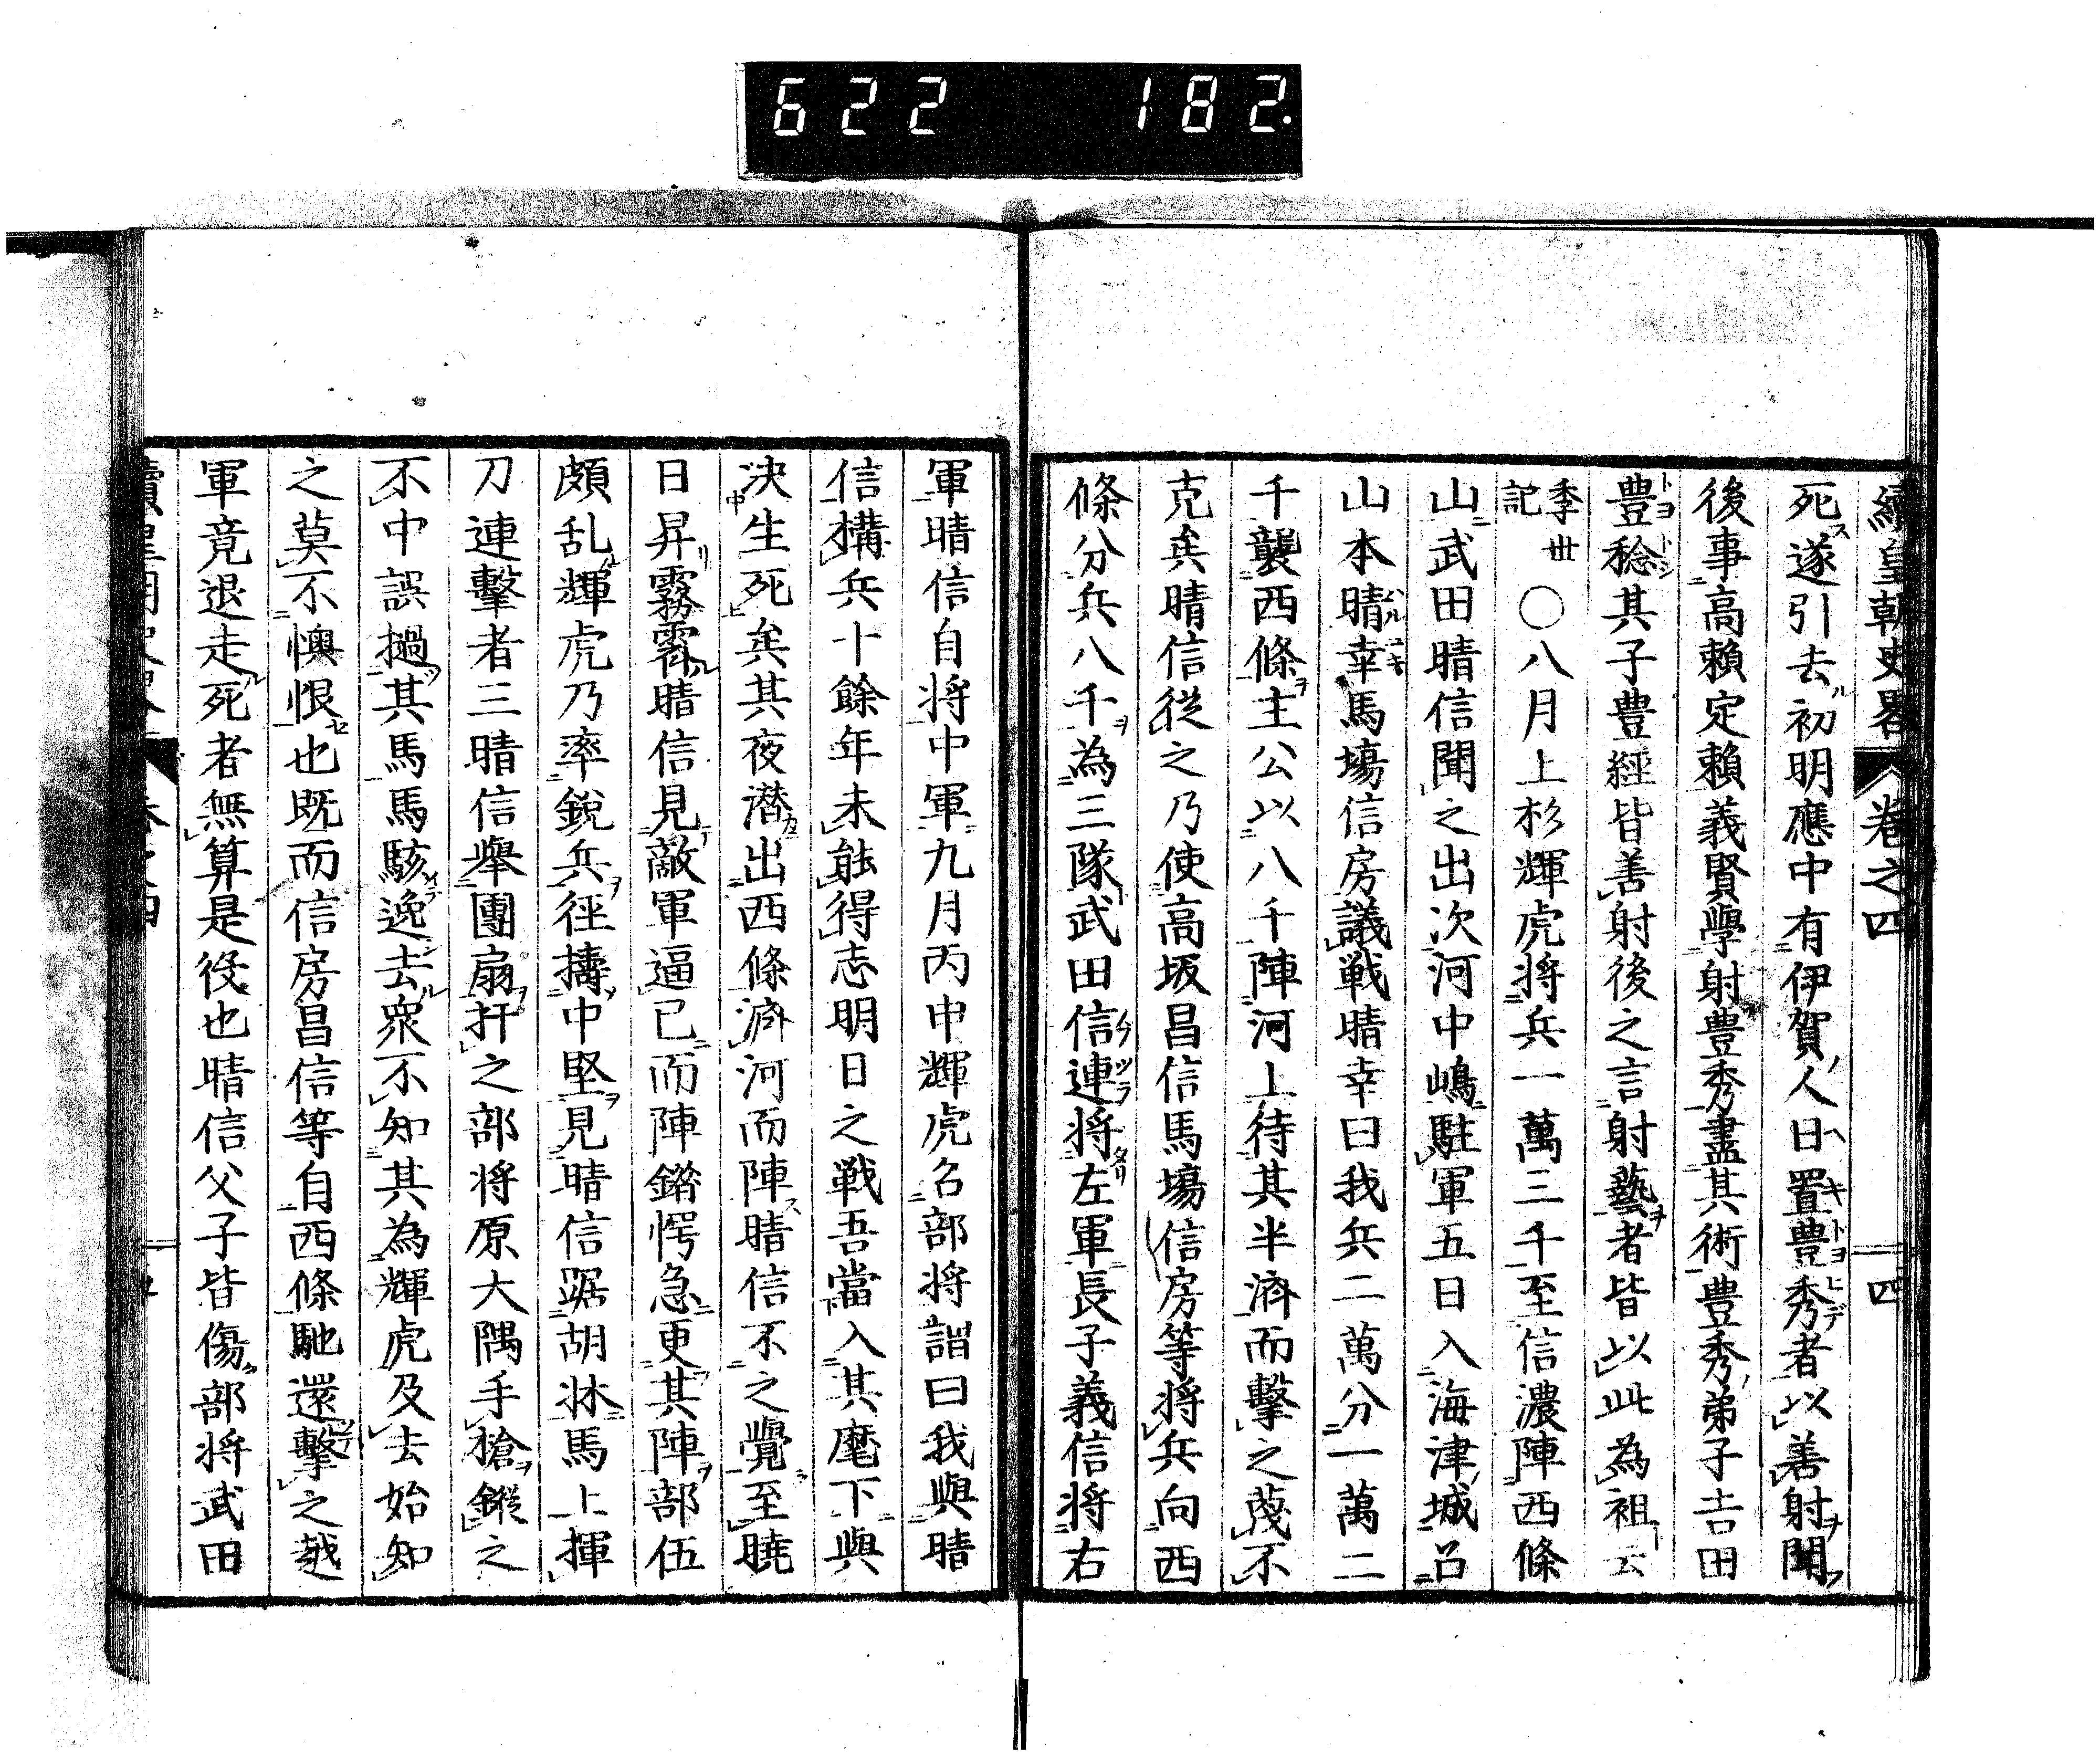 622 182.
續皇朝史畧 卷之四 四
死遂引去初明應中有伊賀人日置豊秀者以善射聞
後事高賴定賴義賢學射豊秀盡其術豊秀弟子吉田
豊稔其子豊經皆善射後之言射藝者皆以此為祖云
季世記 〇八月上杉輝虎将兵一萬三千至信濃陣西條
山武田晴信聞之出次河中嶋駐軍五日入海津城召
山本晴幸馬塲信房議戦晴幸曰我兵二萬分一萬二
千襲西條主公以八千陣河上待其半濟而擊之蔑不
克矣晴信從之乃使高坂昌信馬塲信房等将兵向西
條分兵八千為三隊武田信連将左軍長子義信将右
軍晴信自将中軍九月丙申輝虎召部将謂曰我與晴
信構兵十餘年未能得志明日之戦吾當入其麾下與
决生死矣其夜潜出西條濟河而陣晴信不之覺至曉
日昇霧霽晴信見敵軍逼已而陣錯愕急更其陣部伍
頗乱輝虎乃率銳兵徑擣中堅見晴信踞胡牀馬上揮
刀連擊者三晴信舉團扇扞之部将原大隅手槍鏦之
不中誤撾其馬馬駭逸去衆不知其為輝虎及去始知
之莫不懊恨也既而信房昌信等自西條馳還擊之越
軍竟退走死者無算是役也晴信父子皆傷部将武田